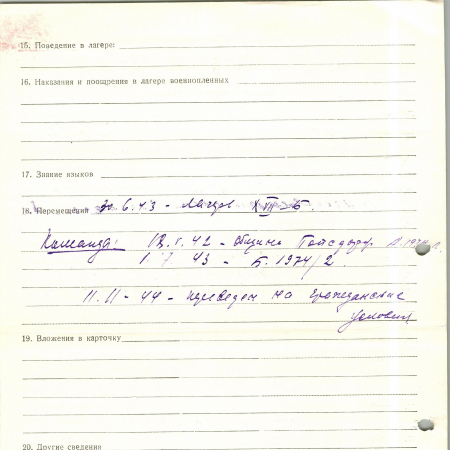 15. Поведение в лагере:
16. Наказания и поощрения в лагере военнопленных
17. Знание языков
18. Перемещения 30.6.43 -
Команда: 42 - община
43 - Б. 1974/2
11.11-44 - переведен на гражданские
условия
19. Вложения в карточку
20. Другие сведения